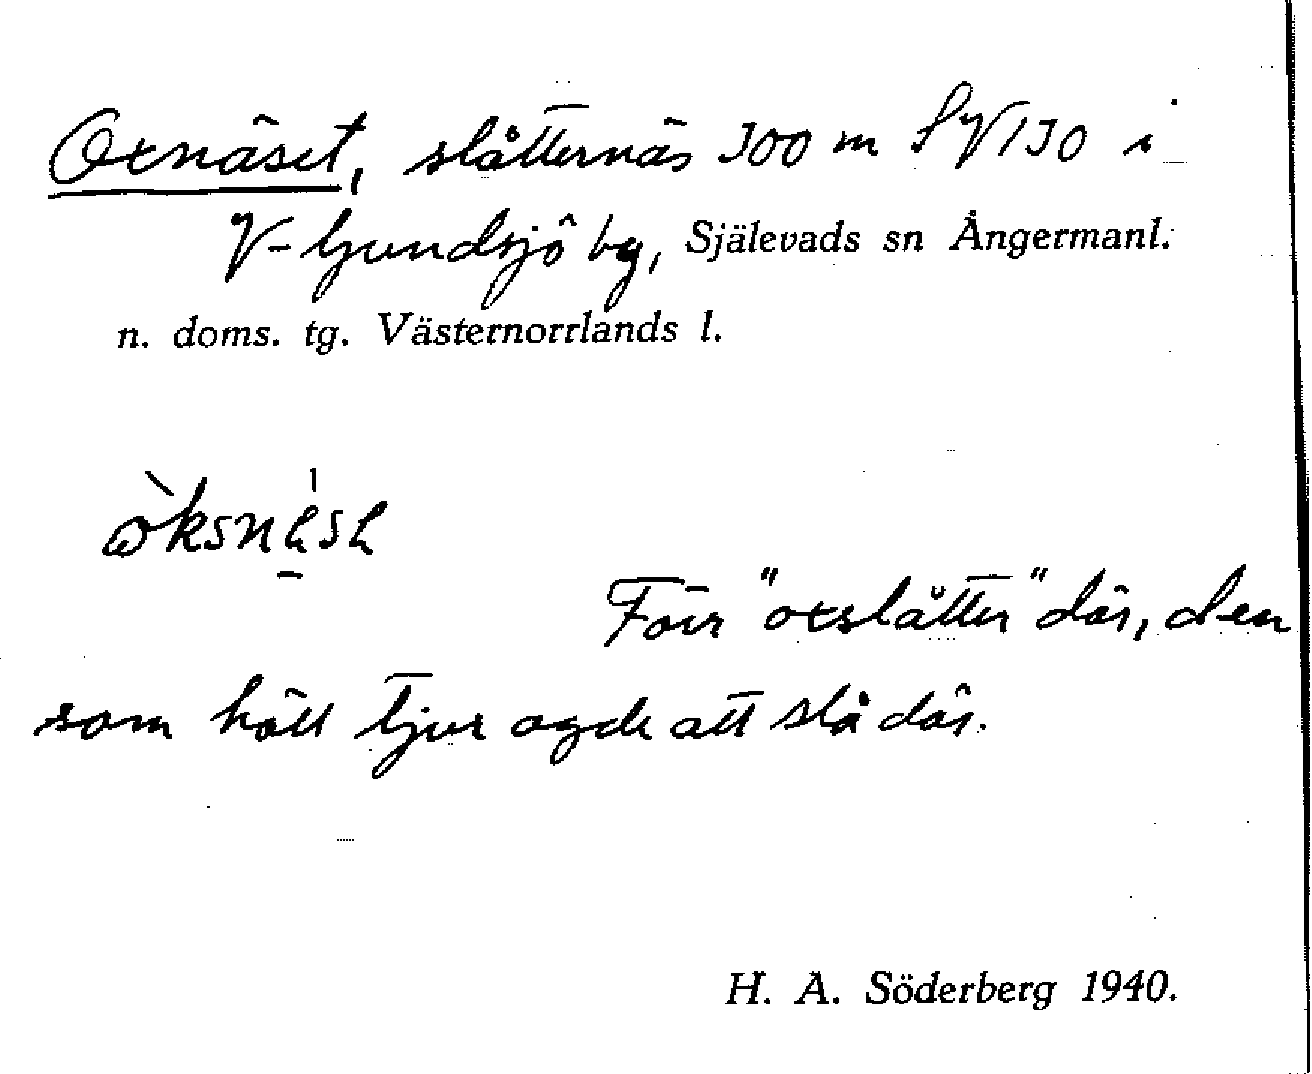 Oxnäset, slåtternäs 300 m SV130 i
V-ljundsjö by, Själevads sn Ångermanl.
n. doms. tg. Västernorrlands l.
Förr "oxslåtter" där, den
som höll tjur ägde att slå där.
H. A. Söderberg 1940.